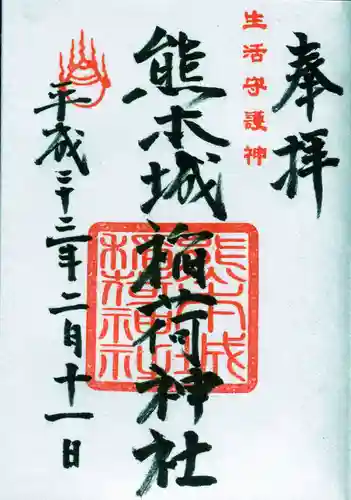 奉拝
生活守護神
熊本城稲荷神社
熊本城稲荷神社
平成二十三年二月十一日